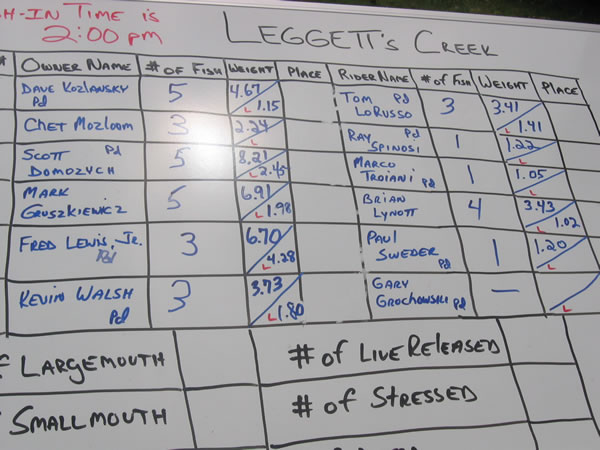 H-IN TIME IS
2:00 pm
LEGGETT'S CREEK
OWNER NAME # OF FISH WEIGHT PLACE RIDER NAME # OF FISH WEIGHT PLACE
DAVE KOZLANSKY Pd 5 4.67 L 1.15
TOM LORUSSO Pd 3 3.41 L 1.41
CHET MOZLOOM 3 2.24 L
RAY SPINOSI Pd 1 1.22 L
SCOTT DOMOZYCH Pd 5 8.21 L 2.45
MARCO TROIANI Pd 1 1.05 L
MARK GRUSZKIEWICZ 5 6.91 L 1.98
BRIAN LYNOTT 4 3.43 L 1.02
FRED LEWIS, JR. Pd 3 6.70 L 4.28
PAUL SWEDER Pd 1 1.20 L
KEVIN WALSH Pd 3 3.73 L 1.80
GARY GROCHOWSKI Pd — L
F LARGEMOUTH # OF LIVE RELEASED
SMALLMOUTH # OF STRESSED